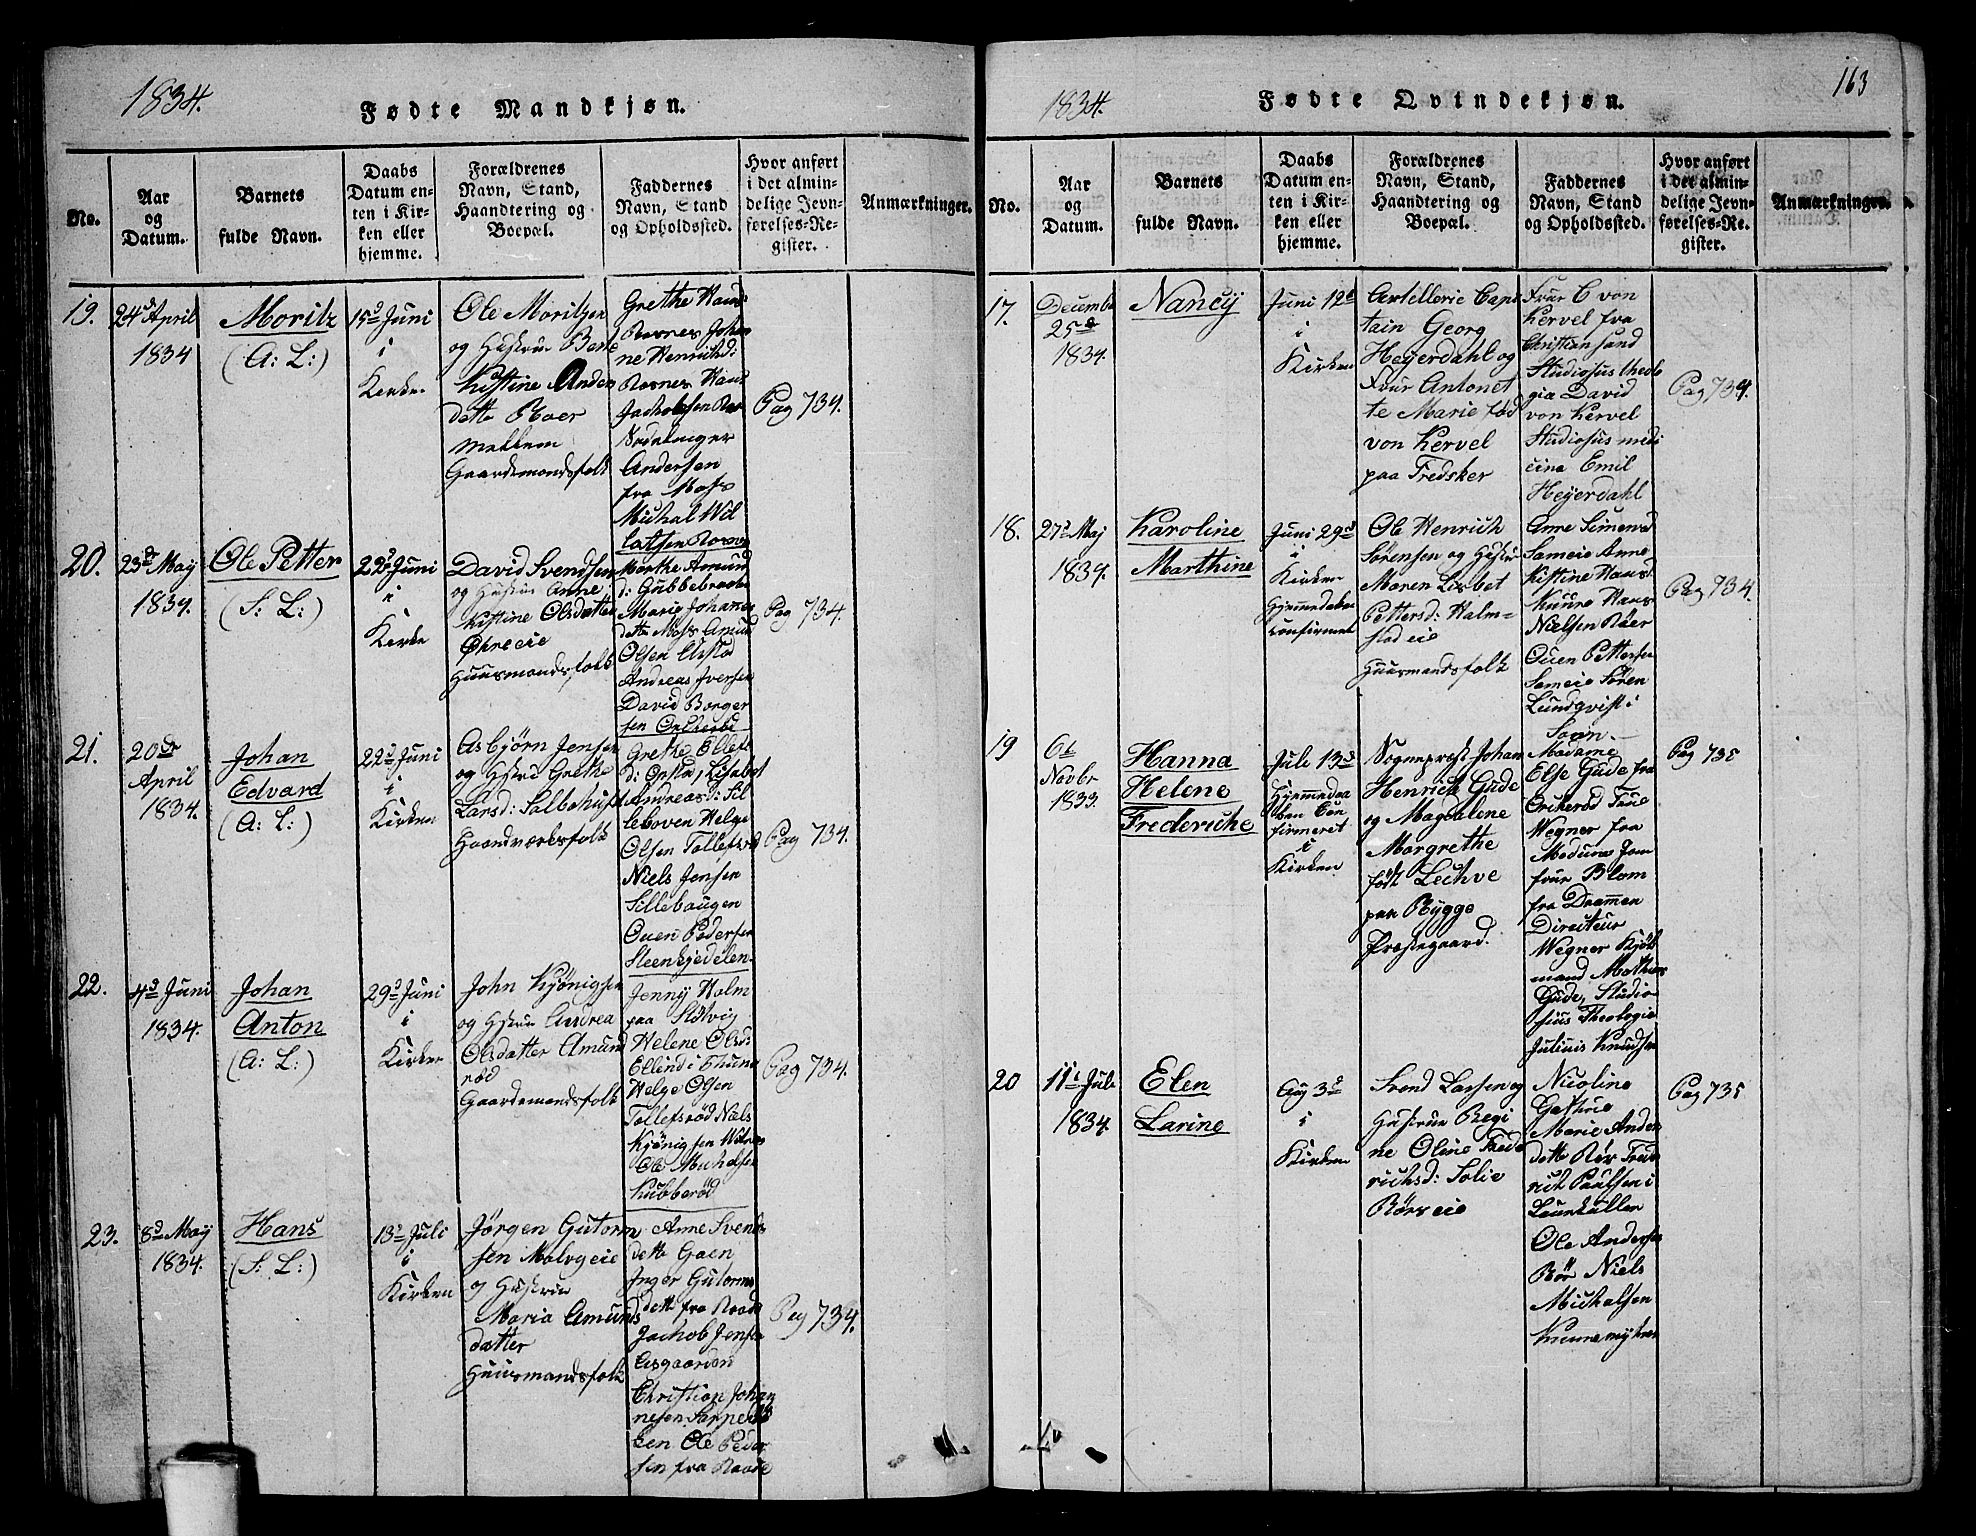 1834.
Fødte Mandkjøn.
No.
Aar
og
Datum.
Barnets
fulde Navn.
Daabs
Datum en-
ten i Kir-
ken eller
hjemme.
Forældrenes
Navn, Stand,
Haandtering og
Boepæl.
Faddernes
Navn, Stand
og Opholdssted.
Hvor anført
i det almin-
delige Jevn-
førelses-Re-
gister.
Anmærkninger.
19.
24d April
1834
Moritz
(A: L:)
15d Juni
i
Kirken
Ole Moritzen
og Hustrue Berte
Kistine Anders
datte Roer
mellem
Gaardemandsfolk
Grethe Hans:
Rosnes Johan
ne Henrichsd:
Rosnes Hans
Jachobsen Roer
Andersen
fra Moss
Michal Wil
latsen Rosnes
Pag 734.
20.
23de May
1834.
Ole Petter
(S: L:)
22d Juni
i
Kirke
David Svendsen
og Hustrue Anne
Kistine Olsdatter
Øhreeie
Huusmandsfolk
Marthe Amund
d: Gubbebraaten
Marig Johanes
datte Moss Amund
Olsen Aastad
Andreas Iversen
David Borger
sen
Pag 734.
21.
20de
April
1834.
Johan
Edvard
(A: L:)
22d Juni
i
Kirken
Asbjørn Jensen
og Hustrue Grethe
Larsd: Salbohuset
Haandværksfolk
Grethe Ellef
d: Lisabet
Andreasd: Sil
leboven Helge
Olsen Tollefsrød
Niels Jensen
Sillebaugen
Ouen Pedersen
Steenkjedelen
Pag 734.
22.
4d Juni
1834.
Johan
Anton
(A: L:)
29d Juni
i
Kirken
John Kjønigsen
og Hustrue Andrea
Olsdatter Amund
rød
Gaardemandsfolk
Jenny Holm
paa Slotvig
Helene Olsd:
Ellind i Thune
Helge Olsen
Tollefsrød Niels
Kjønigsen
Ole Michelsen
Kubberød
Pag 734.
23.
8d May
1834.
Hans
(S: L:)
13d Juli
i
Kirken
Jørgen Gutorm
sen Molvgeie
og Hustrue
Maria Amunds
datter
Huusmandsfolk
Anne Svends
datte Gaen
Inger Gutorms
datte fra Raade
Jachob Jensen
Aasgaarden
Christian Johan
nesen
Ole Peder
sen fra Raade
Pag 734.
1834.
Fødte Qvindekjøn.
163
No.
Aar
og
Datum.
Barnets
fulde Navn.
Daabs
Datum en-
ten i Kir-
ken eller
hjemme.
Forældrenes
Navn, Stand,
Haandtering og
Boepæl.
Faddernes
Navn, Stand
og Opholdssted.
Hvor anført
i det almin-
delige Jevn-
førelses-Re-
gister.
Anmærkninger.
17.
December
25de
1834.
Nancy
Juni 12t
i
Kirken
Artellerie Capi
tain Georg
Heyerdahl og
Frue Antonet
te Marie fød
von Kervel
paa Fredsker
Frue C von
Kervel fra
Christiansand
Studiosus theolo
gia David
von Kervel
Studiosus medi
cina Emil
Heyerdahl
Pag 734.
18.
27d Maj
1834.
Karoline
Marthine
Juni 29d
i
Kirken
Hjemmedøbt
confirmert
Ole Henrich
Sørensen og Hustrue
Maren Lisbet
Pettersd: Halm-
stad eie
Huusmandsfolk
Anne Simensd
Sameie Anne
Kistine Hansd.
Hans
Nielsen Røer
Ouen Pettersen
Sameie Søren
Lundqvist i
Soon.
Pag 734.
19
6t
Novbr
1833.
Hanna
Helene
Frederiche
Juli 13d
Hjemmedaa
ben Con
firmeret
i
Kirken
Sognepræst Johan
Henrich Gude
og Magdalene
Margrethe
født Lechve
paa Rygge
Præstegaard.
Madame
Else Gude fra
Frue
Wegner fra
Modums Jom
frue Blom
fra Drammen
Directeur
Wegner Kjøb
mand Mathias
Gude, Studio
sius Theologie
Julius Knudsen
Pag 735
20
11t Juli
1834.
Elen
Larine
Aug 3d
i
Kirken
Svend Larsen og
Hustrue Regi
ne Oline Frede
richsd: Solie
Børseie
Nicoline
Gathrie
Marie Anders
datte Bør Frede
rich Paulsen i
Ole Andersen
Bør Niels
Michalsen
Pag 735